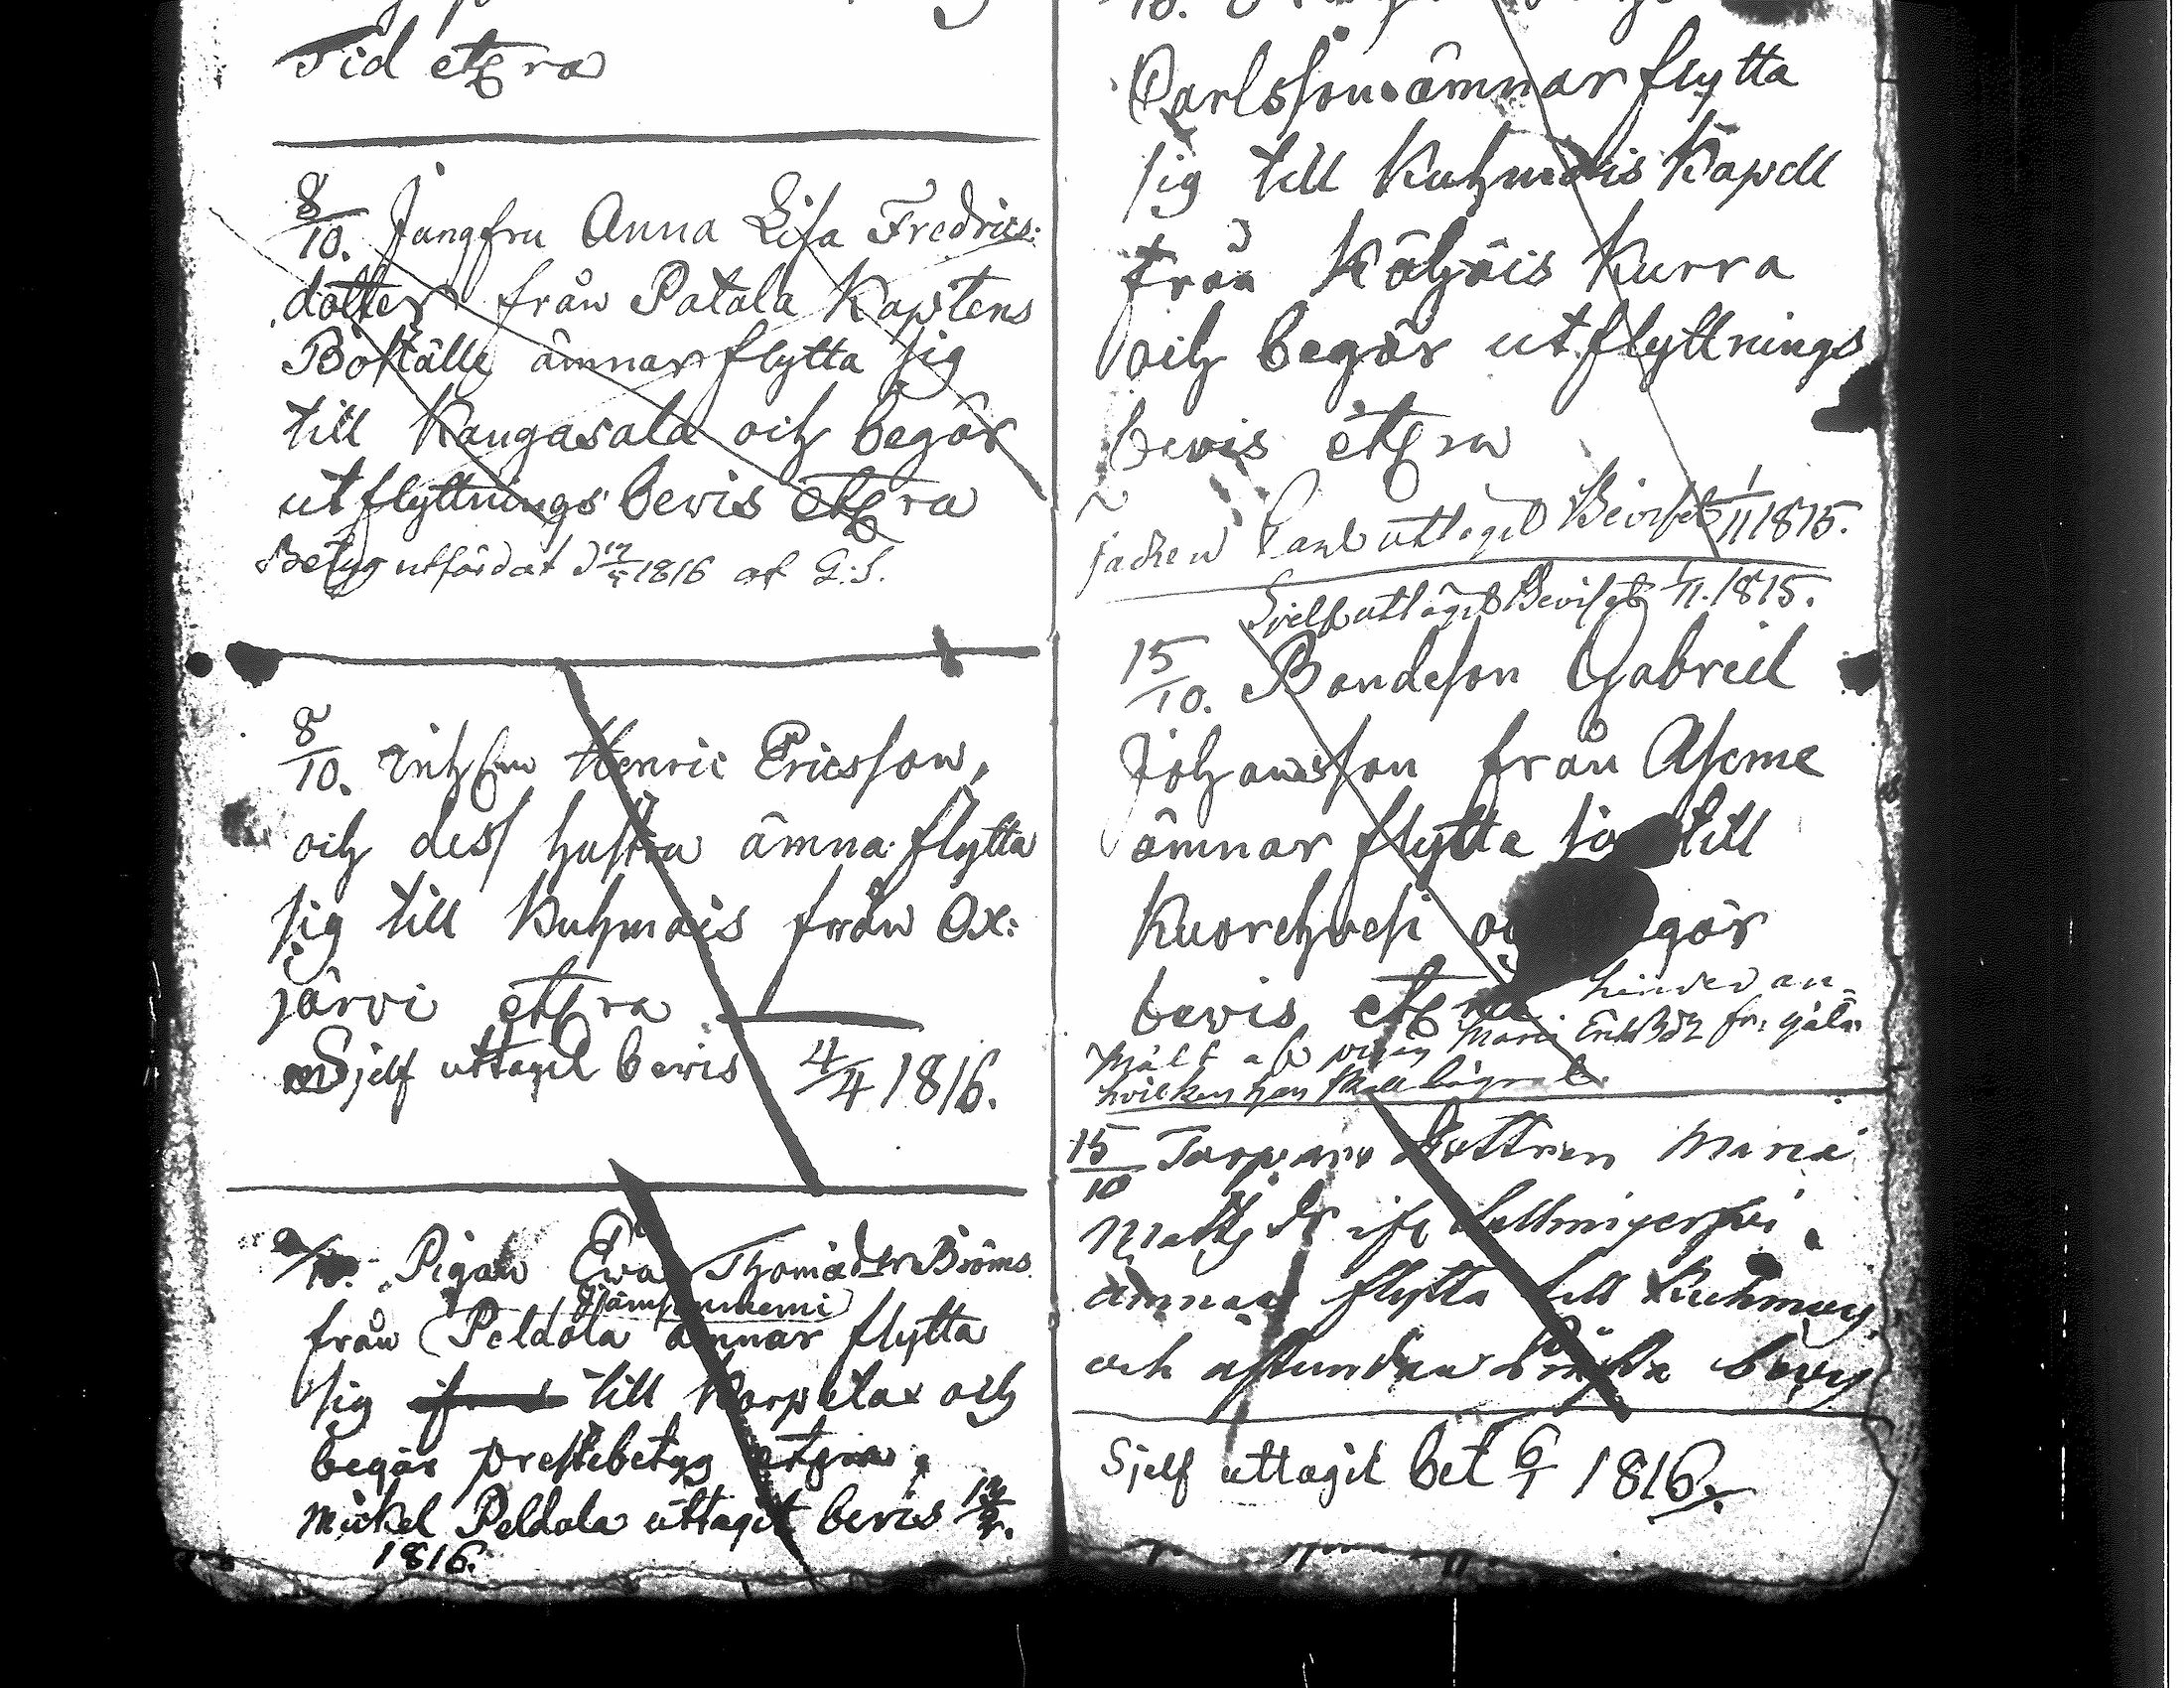 Tid etc ra
8/10. Jungfru Anna Lisa Fredrics:
dotter från Patala Kaptens
Boställe ämnar flytta sig
till Kangasala och begär
utflyttnings bevis etc ra
Betyg utfärdat d 1816 af G:S.
8/10. Henric Ericsson,
och dess hustru ämna flytta
sig till Kuhmois från Ox:
järvi etc ra
Sjelf uttagit bevis 4/4 1816.
Pigan Eva Thomædtr Bröms
från (Peldola ämnar flytta
sig till Korpelax och
begär prestebetyg etc ra
Mickel Peldola uttagit bevis
1816.
Carlsson ämnar flytta
sig till Kuhmois Kapell
från Käljäis Kurra
och begär utflyttnings
bevis etc ra
uttagit Beviset 1/11 1815.
Sjelf uttagit Beviset 1/11. 1815.
15/10. Bondeson Gabriel
Johansson från Aseme
ämnar flytta sig till
Kuorehvesi
bevis etc ra hinder an-
mält af pigan Maria
hvilken han skall
15/10 Dottren Maria
ämnar flytta till Kuhmois
och åstundar bevis
Sjelf uttagit bet 6/1 1816.